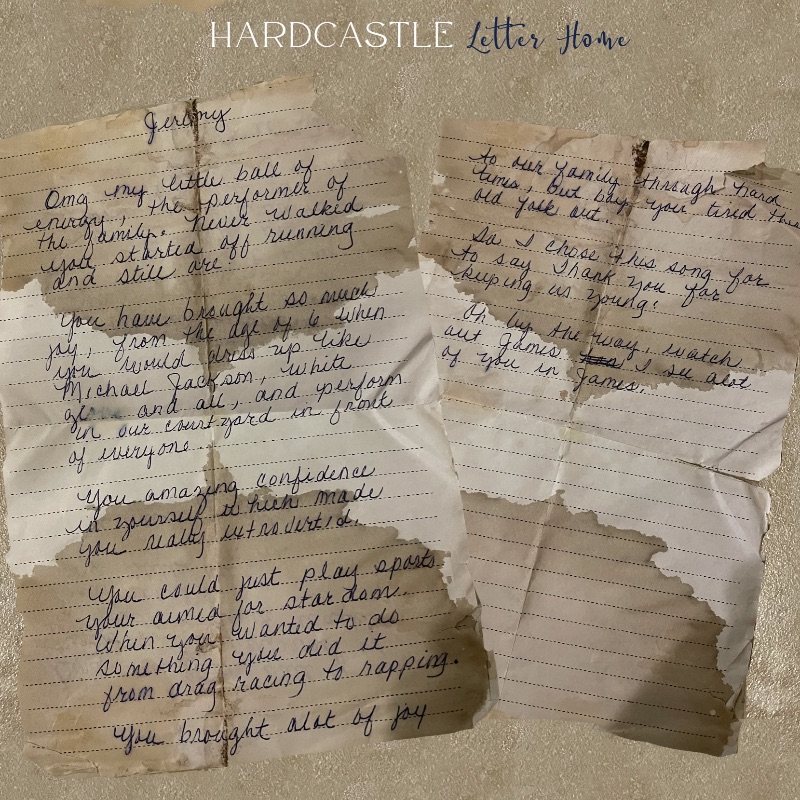 HARDCASTLE Letter Home
Jeremy
Omg my little ball of
energy, the performer of
the family. Never walked
you started off running
and still are!
You have brought so much
joy, from the age of 6 when
you would dress up like
Michael Jackson, white
glove and all, and perform
in our courtyard in front
of everyone
You amazing confidence
in yourself which made
you really extroverted.
You could just play sports
your aimed for stardom.
When you wanted to do
something you did it
from drag racing to rapping.
You brought alot of joy
to our family through hard
times, but boy you tired this
old folk out.
So I chose this song for
to say Thank you for
keeping us young!
Oh by the way, watch
out James I see alot
of you in James.